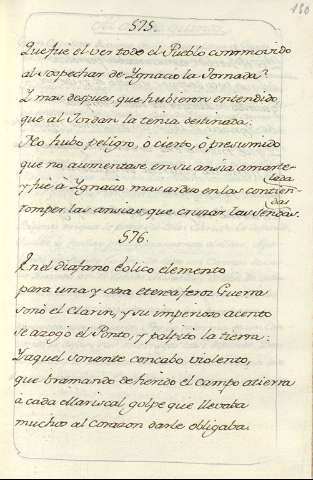 180
575.
Que fuè el ver todo el Pueblo commovido
al sospechar de Ygnacio la Jornada?
Y mas despues, que hubieron entendido,
que al Jordan la tenia destinada.
No hubo peligro, o cierto, ó presumido
que no aumentase en su ansia amarte-
lada
y fuè à Ygnacio mas arduo en las contien-
das
romper las ansias, que cruzar las sendas.
576.
En el diafano Eolico elemento
para una y otra eterea feroz Guerra
sonó el Clarin, y su imperioso acento
se azogó el Ponto, y palpitó la tierra:
Y aquel sonante concabo violento,
que bramando de herido el campo atierra
à cada Marcial golpe que llevaba
mucho al corazon darle obligaba.